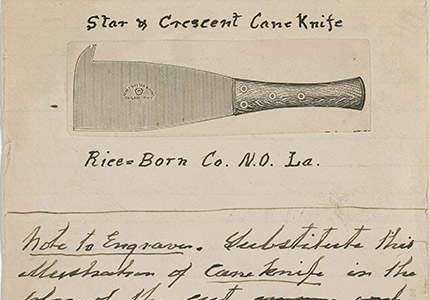 Star & Crescent Cane Knife
Rice=Born Co. N.O. La.
Note to Engraver. Substitute this
illustration of cane knife in the
place of the cut